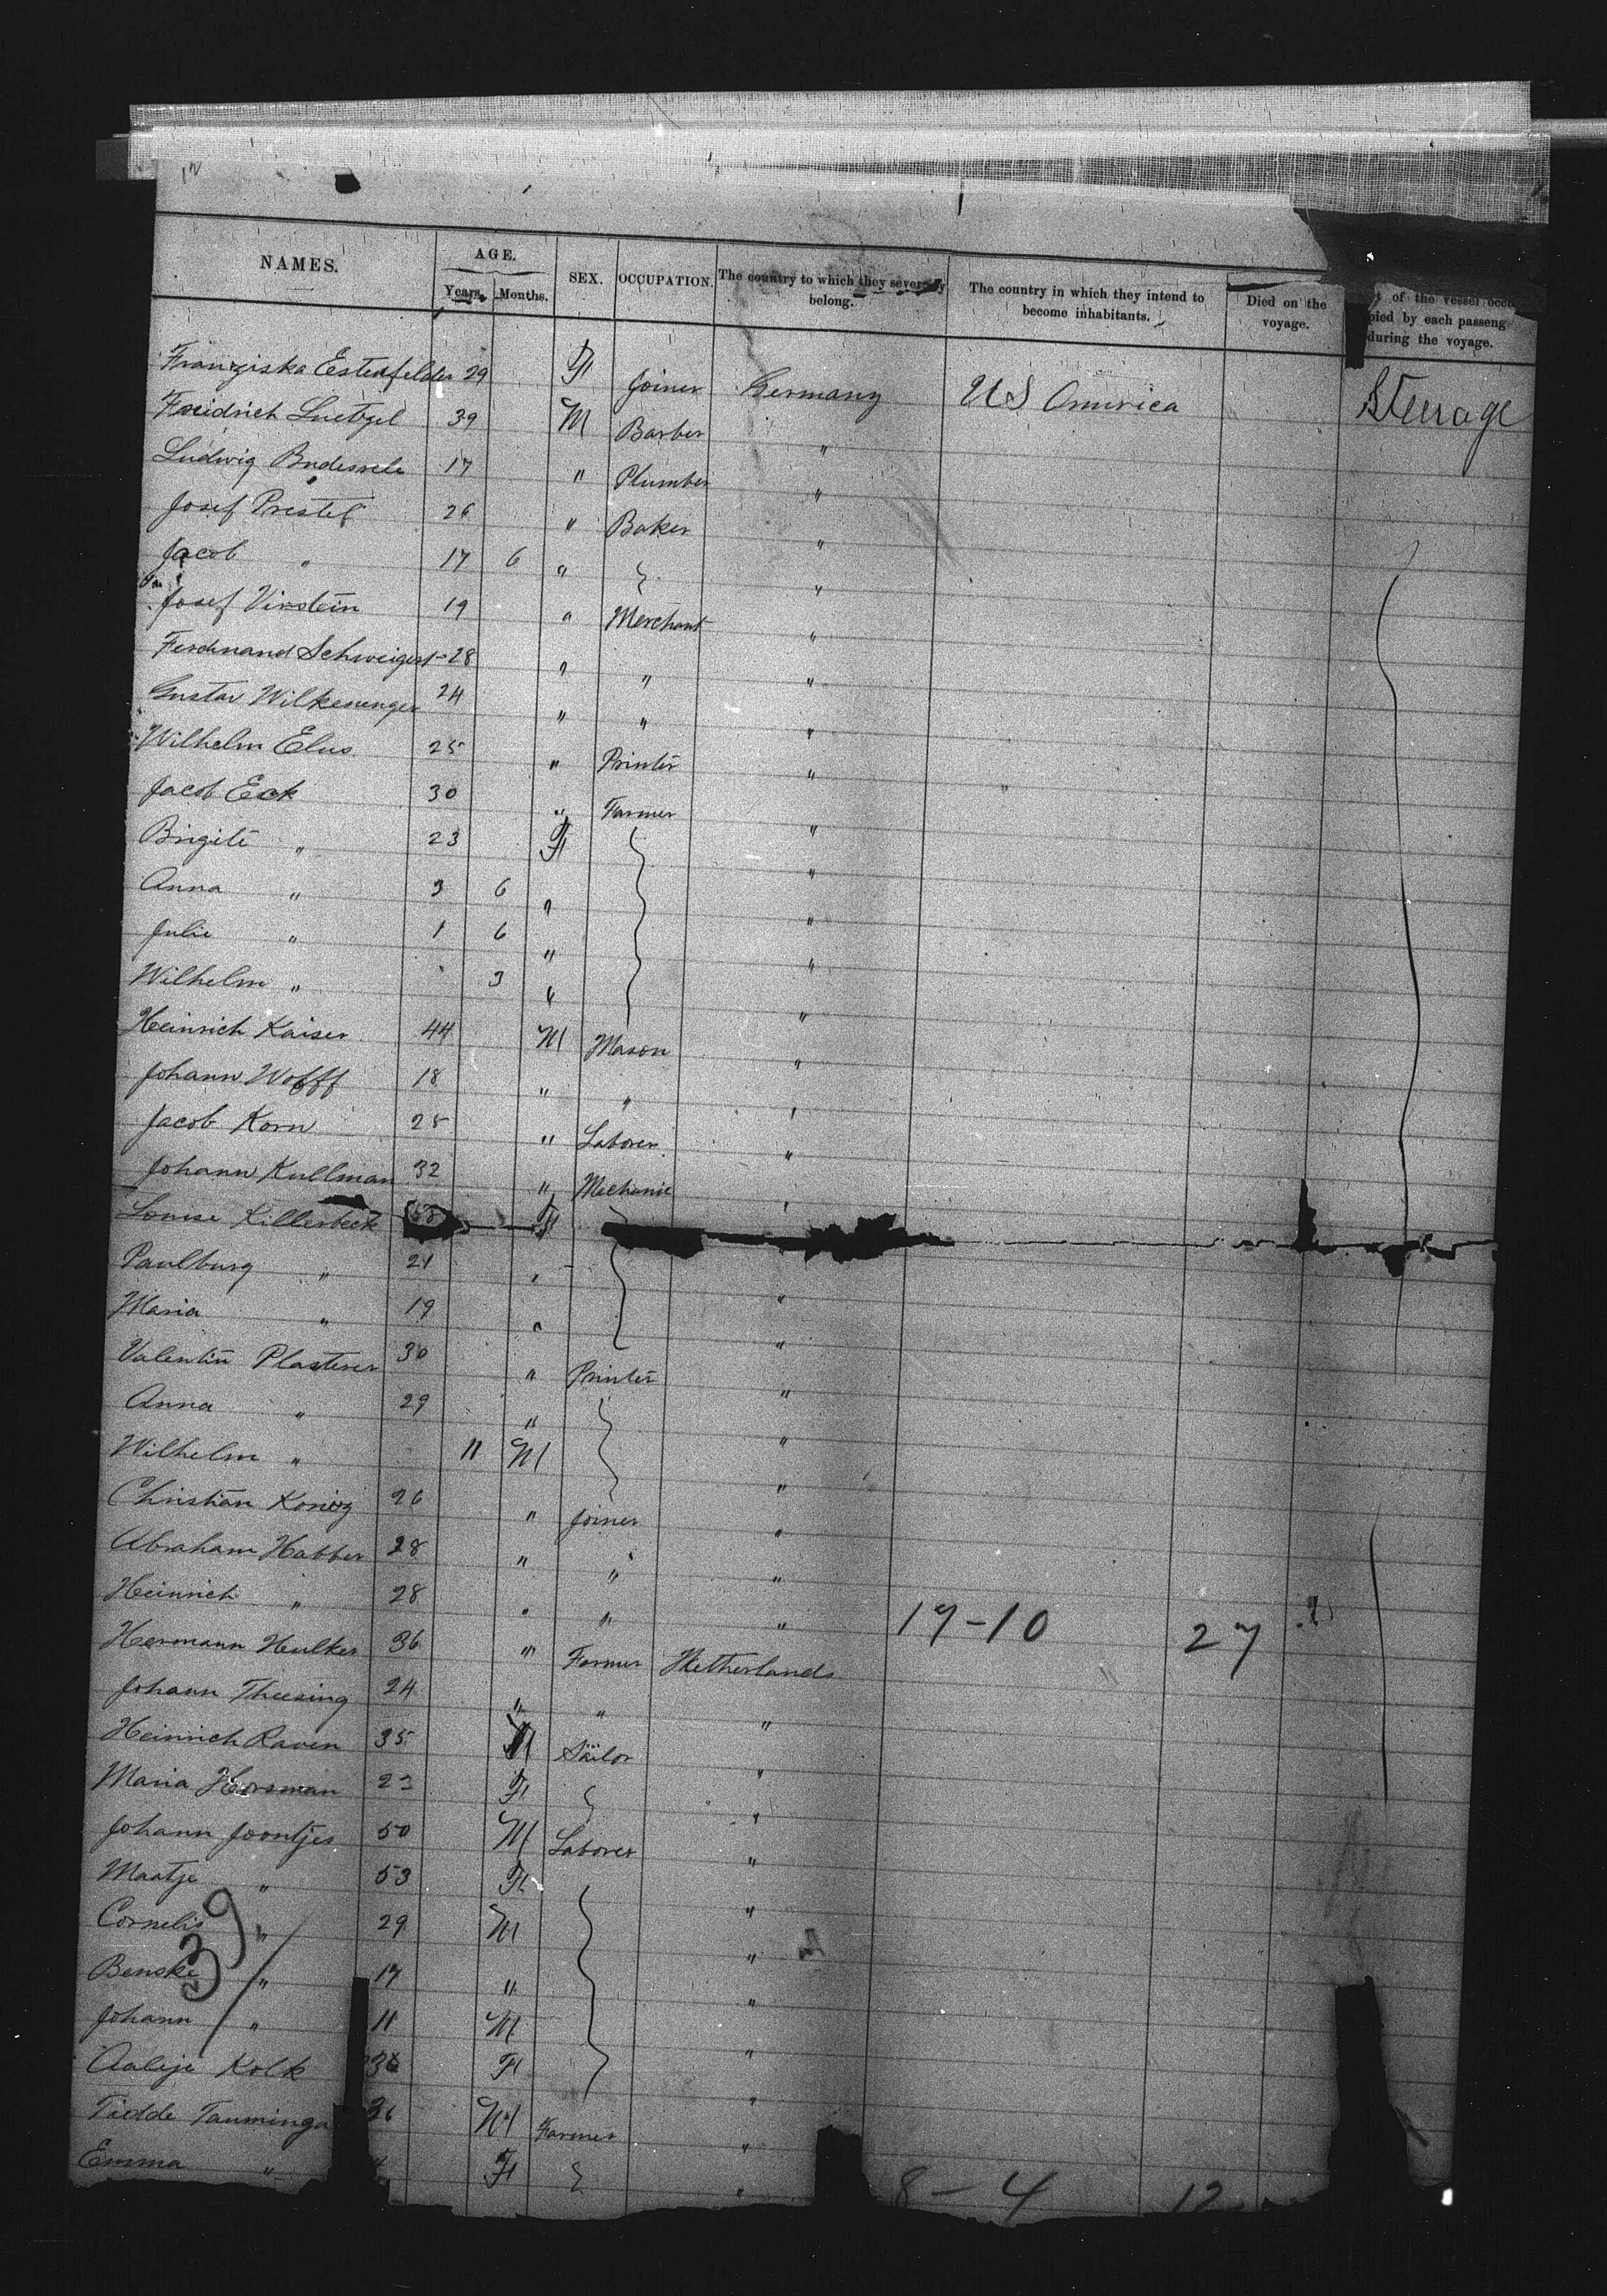 NAMES. AGE. Years. Months. SEX. OCCUPATION. The country to which they severally belong. The country in which they intend to become inhabitants. Died on the voyage. of the vessel occupied by each passeng during the voyage.
Franziska Estenfelder 29 F Joiner Germany US America Steerage
Freidrich Luetzel 39 M Barber "
Ludwig 17 " Plumber "
Josef Prestel 26 " Baker "
Jacob " 17 6 " "
Josef Virstein 19 " Merchant "
Ferdinand Schweigert 28 " " "
Gustav Wilkesenger 24 " " "
Wilhelm Elus 25 " Printer "
Jacob Eck 30 " Farmer "
Brigite " 23 F "
Anna " 3 6 " "
Julie " 1 6 " "
Wilhelm " 3 " "
Heinrich Kaiser 44 M Mason "
Johann Wolff 18 " " "
Jacob Korn 25 " Laborer "
Johann Kullman 32 " Mechanic "
Louise Killesbeck F
Paulburg " 21 " "
Maria " 19 " "
Valentin Plasterer 30 " Printer "
Anna " 29 " "
Wilhelm " 11 M "
Christian Konig 26 " Joiner "
Abraham Habber 28 " " "
Heinrich " 28 " " " 17-10 27
Hermann Hulker 36 " Farmer Netherlands
Johann Theesing 24 " " "
Heinrich Raven 35 M Sailor "
Maria Horsman F "
Johann Joontjes 50 M Laborer "
Maatje " 53 F "
Cornelis " 29 M "
Benske " 17 " "
Johann " 11 M "
Aaltje Kolk F "
Tidde Tauminga 36 M Farmer "
Emma " F "
39
8-4 12